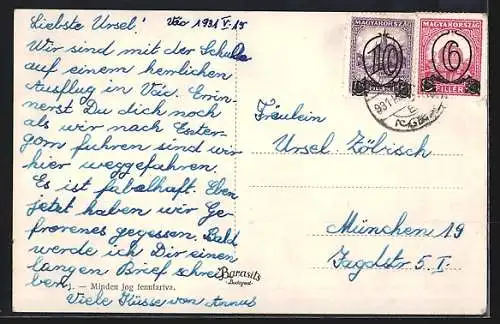 Liebste Ursel! Vác 1931 V. 15
Wir sind mit der Schule
auf einem herrlichen
Ausflug in Vác. Erin-
nerst Du dich noch
als wir nach Eszter-
gom fuhren sind wir
hier weggefahren.
Es ist fabelhaft. Eben
jetzt haben wir Ge-
frorenes gegessen. Bald
werde ich Dir einen
langen Brief schrei-
ben.
Viele Küsse von Annus
J. — Minden jog fenntartva.
Barasits
Budapest
MAGYARORSZÁG
10
MAGYARORSZÁG
6
FILLÉR
Fräulein
Ursel Zöbisch
München 19
Jagdstr 5. I.